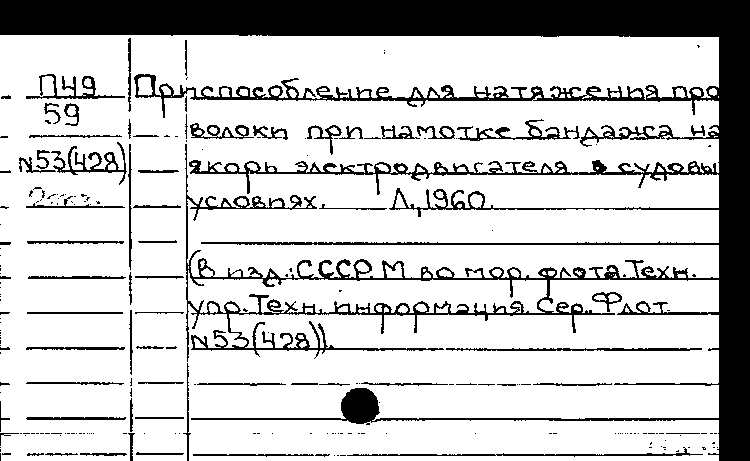 П49
59
N53(428)
2экз.
Приспособление для натяжения про
волоки при намотке бандажа на
якорь электродвигателя в судовы
условиях. Л., 1960.
(В изд.: СССР. М во мор. флота. Техн.
упр. Техн. информация. Сер. Флот.
N53(428)).